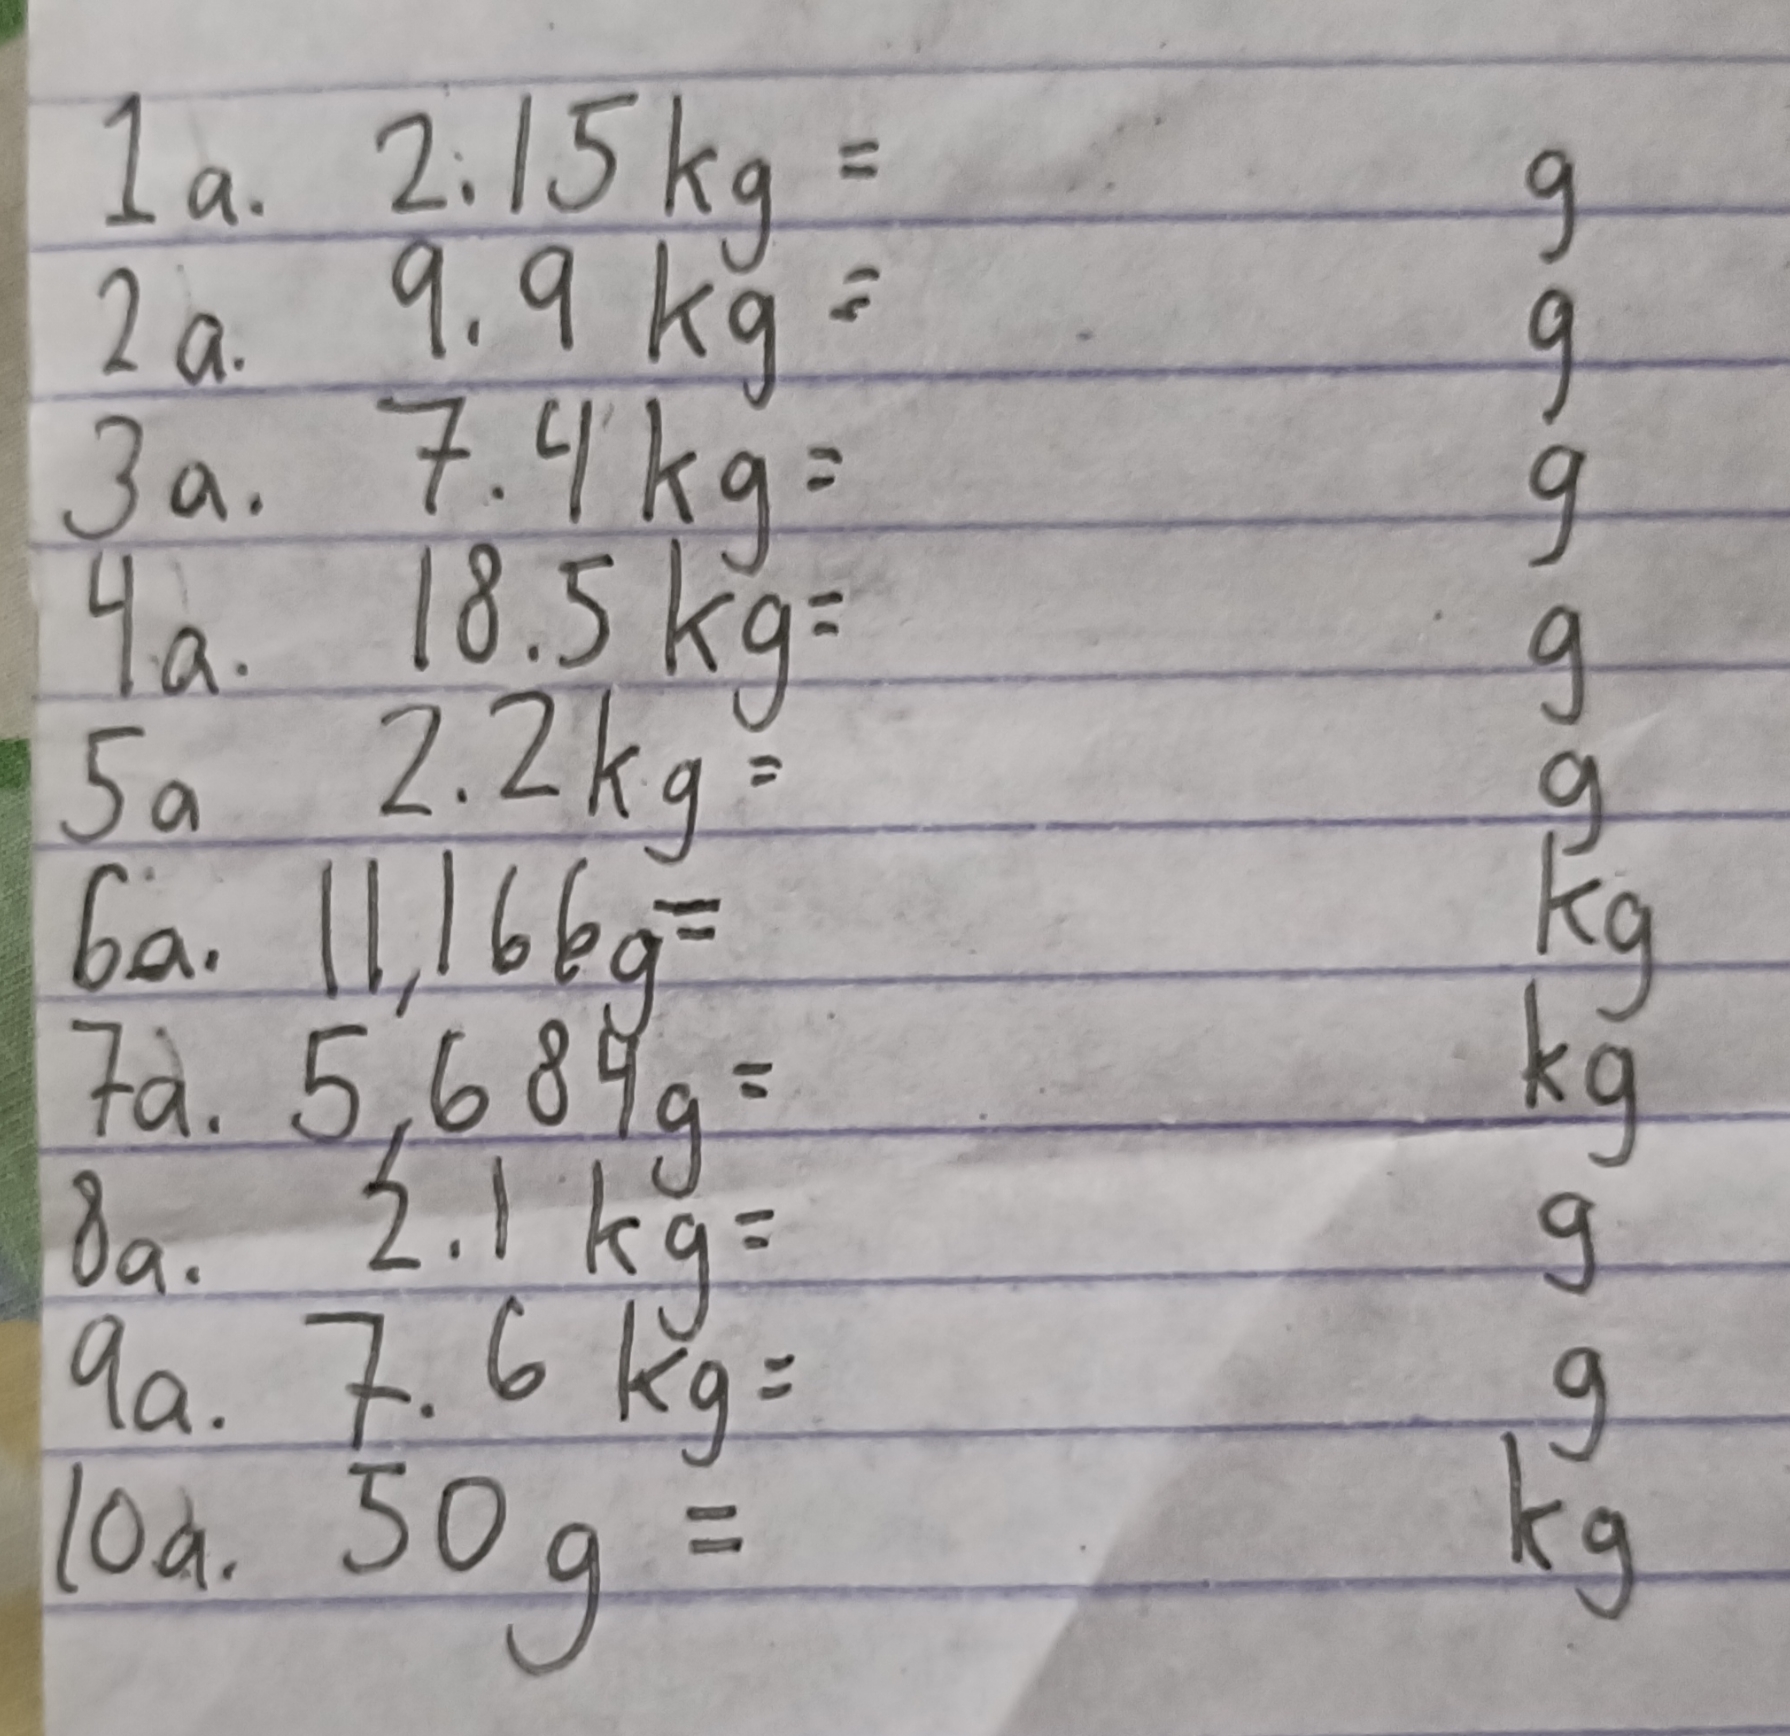 1a. 2.15 kg = g
2a. 9.9 kg = g
3a. 7.4 kg = g
4a. 18.5 kg = g
5a 2.2 kg = g
6a. 11,166g = kg
7a. 5,684g = kg
8a. 2.1 kg = g
9a. 7.6 kg = g
10a. 50 g = kg